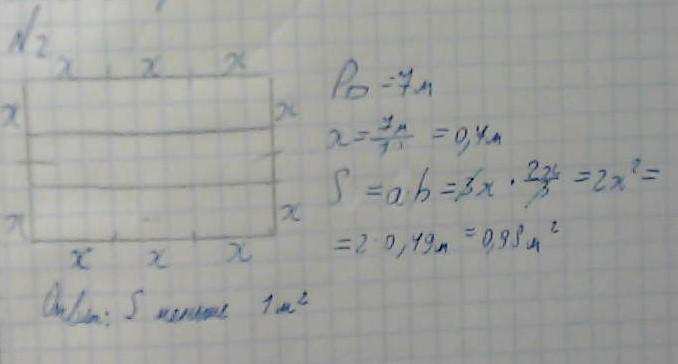 N2
x x x
x x
x x
x x x
P▭ = 7м
x = 7м/10 = 0,7м
S = a·b = 3x · 2x/3 = 2x² =
= 2·0,49м = 0,98м²
Ответ: S меньше 1м²